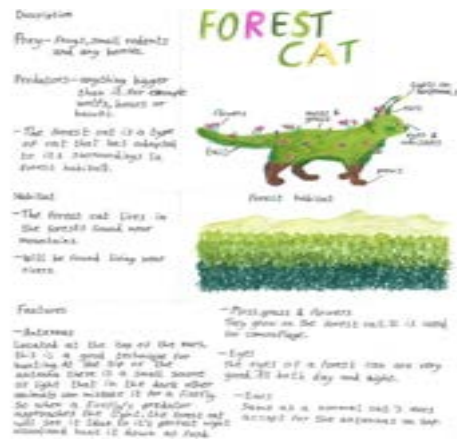 Description
FOREST
CAT
Prey- frogs, small rodents
and any berries.
Predators- anything bigger
than it for example
wolfs, bears or
- The forest cat is a type
of cat that has adapted
to its surroundings in
forest habitat.
flowers
moss &
grass
ears
eyes &
whiskers
tail
paws
Habitat
- The forest cat lives in
the forests found near
mountains.
- Will be found living near
rivers.
forest habitat
Features
- Antennas
Located at the top of the ears,
this is a good technique for
hunting. At the tip of the
antenna there is a small source
of light that in the dark other
animals can mistake it for a firefly.
So when a firefly's predator
approaches the light, the forest cat
will see it due to it's perfect night
and hunt it down as food.
- Moss, grass & flowers
They grow on the forest cat. It is used
for camouflage.
- Eyes
The eyes of a forest cat are very
good at both day and night.
- Ears
Same as a normal cat's ears
accept for the antennas on top.